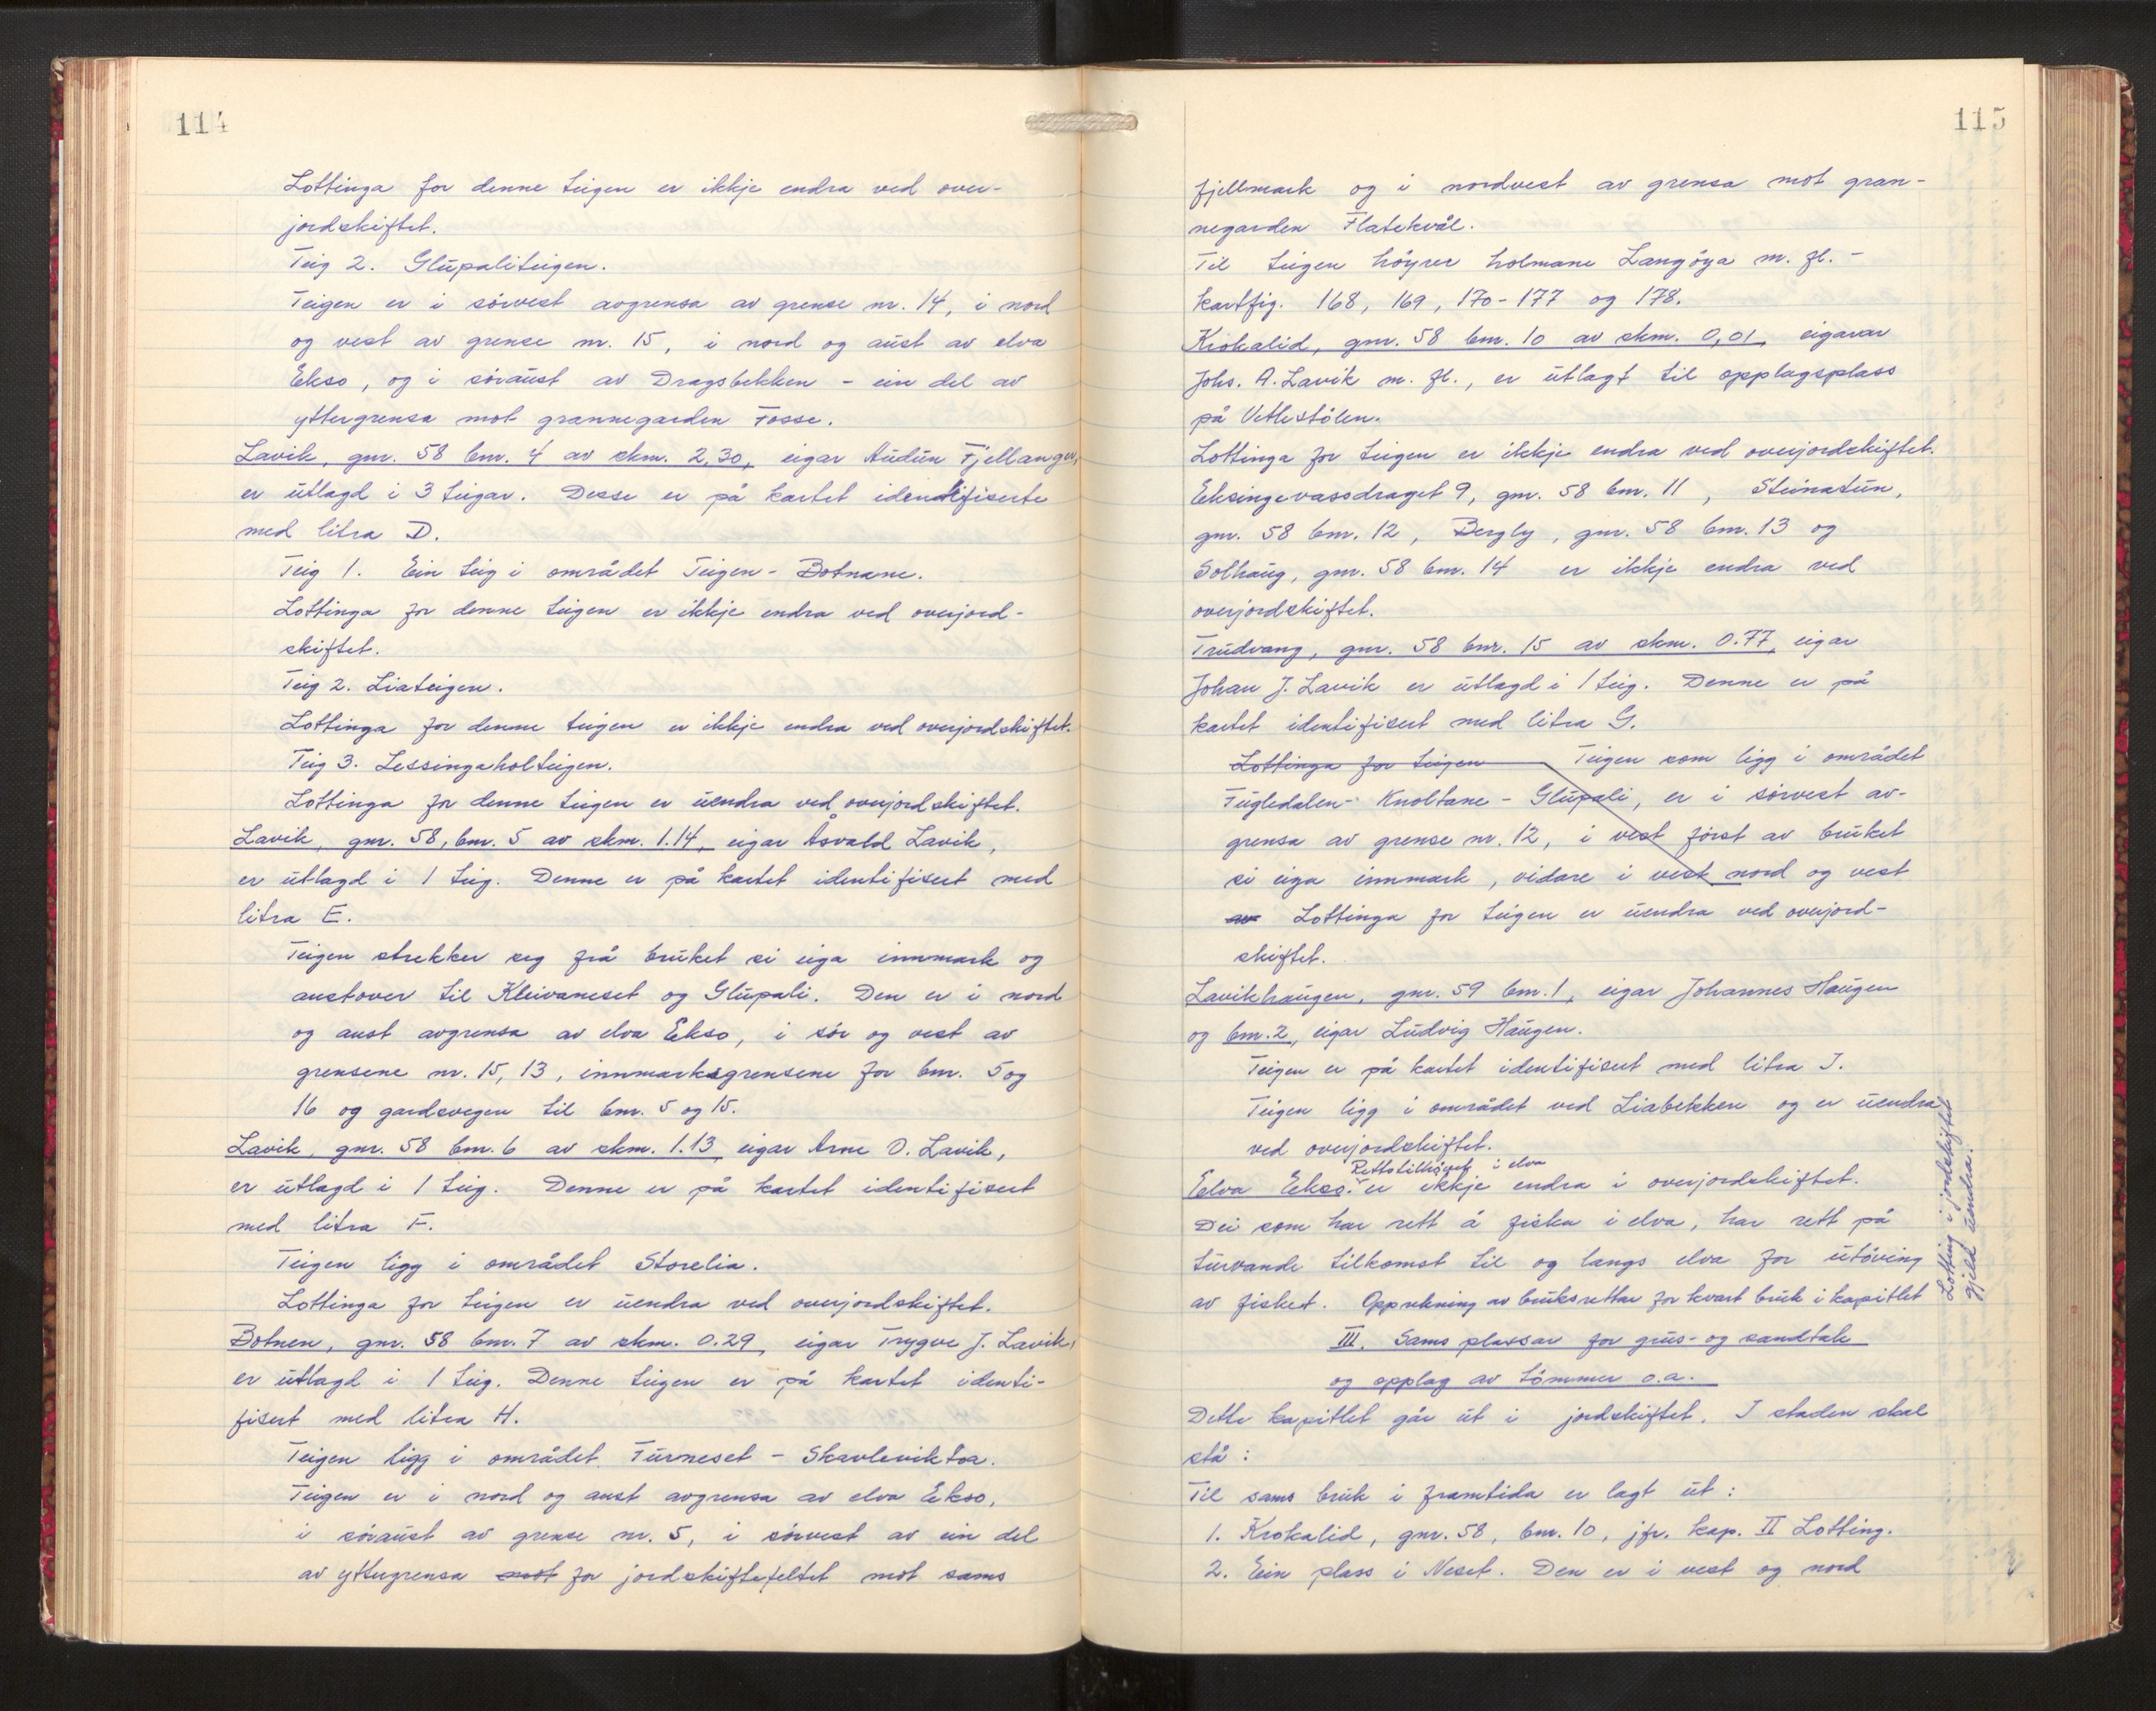 114
Lottinga for denne teigen er ikkje endra ved over-
jordskiftet.
Teig 2. Glupaliteigen.
Teigen er i sørvest avgrensa av grense nr. 14, i nord
og vest av grense nr. 15, i nord og aust av elva
Ekso, og i søraust av Dragsbekken - ein del av
yttergrensa mot grannegarden Fosse.
Lavik, gnr. 58 bnr. 4 av skm. 2,30, eigar Audun Fjellanger,
er utlagd i 3 teigar. Desse er på kartet identifiserte
med litra D.
Teig 1. Ein teig i området Teigen - Botnane.
Lottinga for denne teigen er ikkje endra ved overjord-
skiftet.
Teig 2. Liateigen.
Lottinga for denne teigen er ikkje endra ved overjordskiftet.
Teig 3. Lessingaholteigen.
Lottinga for denne teigen er uendra ved overjordskiftet.
Lavik, gnr. 58, bnr. 5 av skm. 1.14, eigar Åsvald Lavik,
er utlagd i 1 teig. Denne er på kartet identifisert med
litra E.
Teigen strekker seg frå bruket si eiga innmark og
austover til Kleivaneset og Glupali. Den er i nord
og aust avgrensa av elva Ekso, i sør og vest av
grensene nr. 15, 13, innmarksgrensene for bnr. 5 og
16 og gardsvegen til bnr. 5 og 15.
Lavik, gnr. 58 bnr. 6 av skm. 1.13, eigar Arne O. Lavik,
er utlagd i 1 teig. Denne er på kartet identifisert
med litra F.
Teigen ligg i området Storelia.
Lottinga for teigen er uendra ved overjordskiftet.
Botnen, gnr. 58 bnr. 7 av skm. 0.29, eigar Trygve J. Lavik,
er utlagd i 1 teig. Denne teigen er på kartet identi-
fisert med litra H.
Teigen ligg i området Furneset - Skavleviktoa.
Teigen er i nord og aust avgrensa av elva Ekso,
i søraust av grense nr. 5, i sørvest av ein del
av yttergrensa mot for jordskiftefeltet mot sams
115
fjellmark og i nordvest av grensa mot gran-
negarden Flatekvål.
Til teigen høyrer holmane Langøya m. fl. -
kartfig. 168, 169, 170-177 og 178.
Krokalid, gnr. 58 bnr. 10 av skm. 0,01, eigarar
Johs. A. Lavik m. fl., er utlagt til opplagsplass
på Vetlestølen.
Lottinga for teigen er ikkje endra ved overjordskiftet.
Eksingevassdraget 9, gnr. 58 bnr. 11, Steinatun,
gnr. 58 bnr. 12, Bergly, gnr. 58 bnr. 13 og
Solhaug, gnr. 58 bnr. 14 er ikkje endra ved
overjordskiftet.
Trudvang, gnr. 58 bnr. 15 av skm. 0.77, eigar
Johan J. Lavik er utlagd i 1 teig. Denne er på
kartet identifisert med litra G.
Lottinga for teigen Teigen som ligg i området
Fugledalen - Knoltane - Glupali, er i sørvest av-
grensa av grense nr. 12, i vest først av bruket
si eiga innmark, vidare i vest nord og vest
av Lottinga for teigen er uendra ved overjord-
skiftet.
Lavikhaugen, gnr. 59 bnr. 1, eigar Johannes Haugen
og bnr. 2, eigar Ludvig Haugen.
Teigen er på kartet identifisert med litra I.
Teigen ligg i området ved Liabekken og er uendra
ved overjordskiftet.
Rettstilhøvet i elva
Eelva Ekso. er ikkje endra i overjordskiftet.
Dei som har rett å fiska i elva, har rett på
turvande tilkomst til og langs elva for utøving
av fisket. Opprekning av bruksrettar for kvart bruk i kapitlet
Lotting i jordskiftet
gjeld uendra.
III. Sams plassar for grus- og sandtak
og opplag av tømmer o.a.
Dette kapitlet går ut i jordskiftet. I staden skal
stå:
Til sams bruk i framtida er lagt ut:
1. Krokalid, gnr. 58, bnr. 10, jfr. kap. II Lotting.
2. Ein plass i Neset. Den er i vest og nord